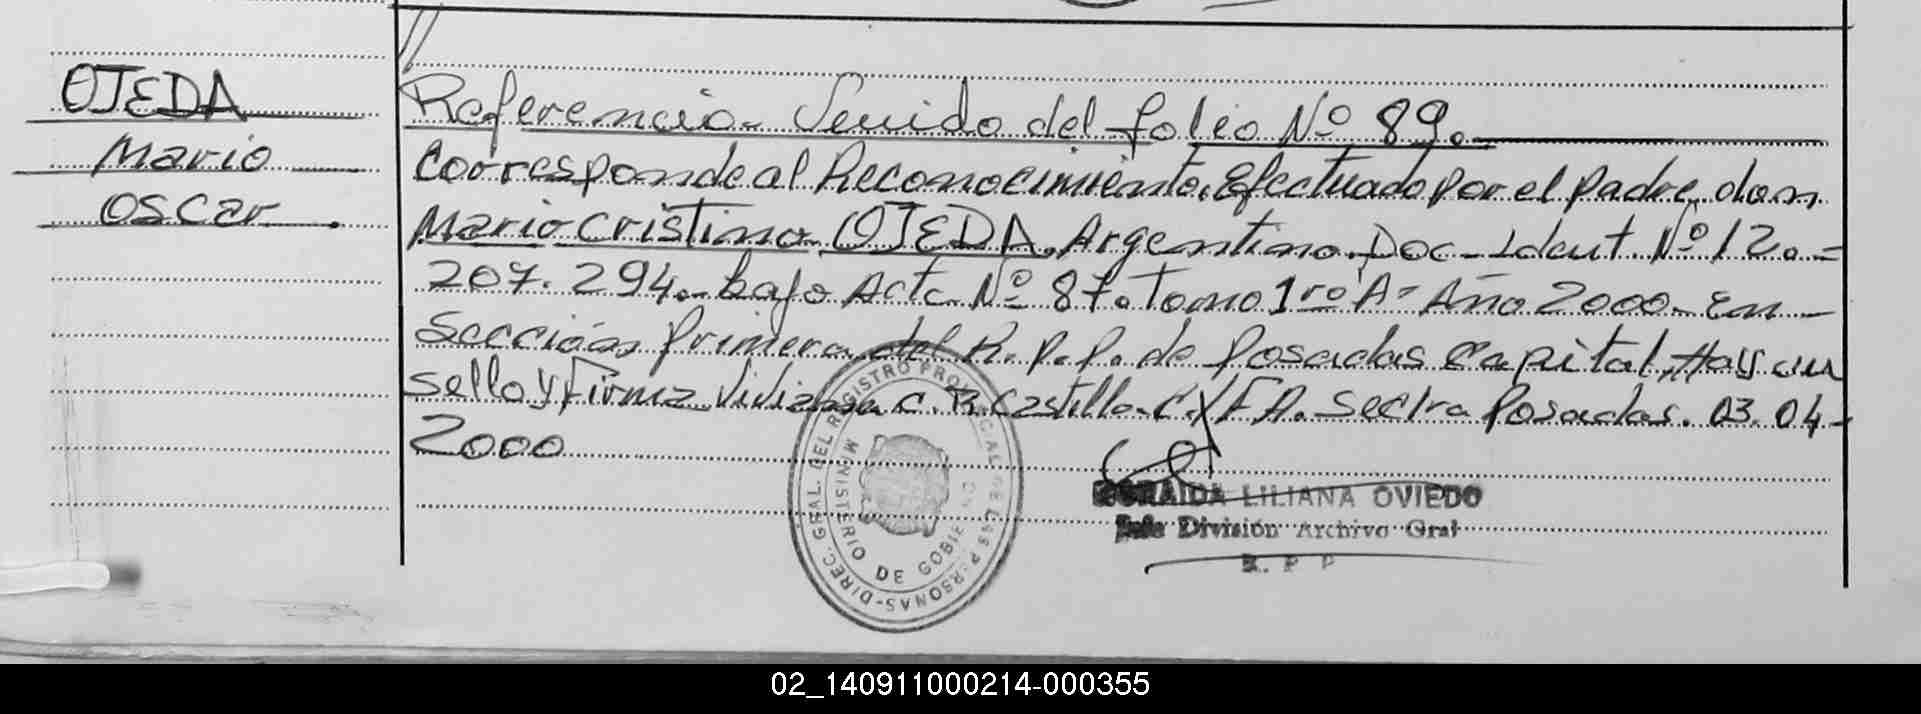 OJEDA
Mario
Oscar.
Referencia- Venido del folio Nº 89.
Corresponde al Reconocimiento. Efectuado por el padre don
Mario Cristino OJEDA. Argentino. Doc- Ident. Nº 12.=
207.294.- bajo Acta Nº 87. Tomo 1ro A- Año 2000- En-
Sección primera del R.P.P. de Posadas Capital. Hay un
sello y Firma Viviana C. R. Castillo- Posadas. 03.04-
2000
DIREC. GRAL. DEL REGISTRO PROVINCIAL DE LAS PERSONAS-
MINISTERIO DE GOBIERNO
LILIANA OVIEDO
Jefe División Archivo Gral
R. P P
02_140911000214-000355